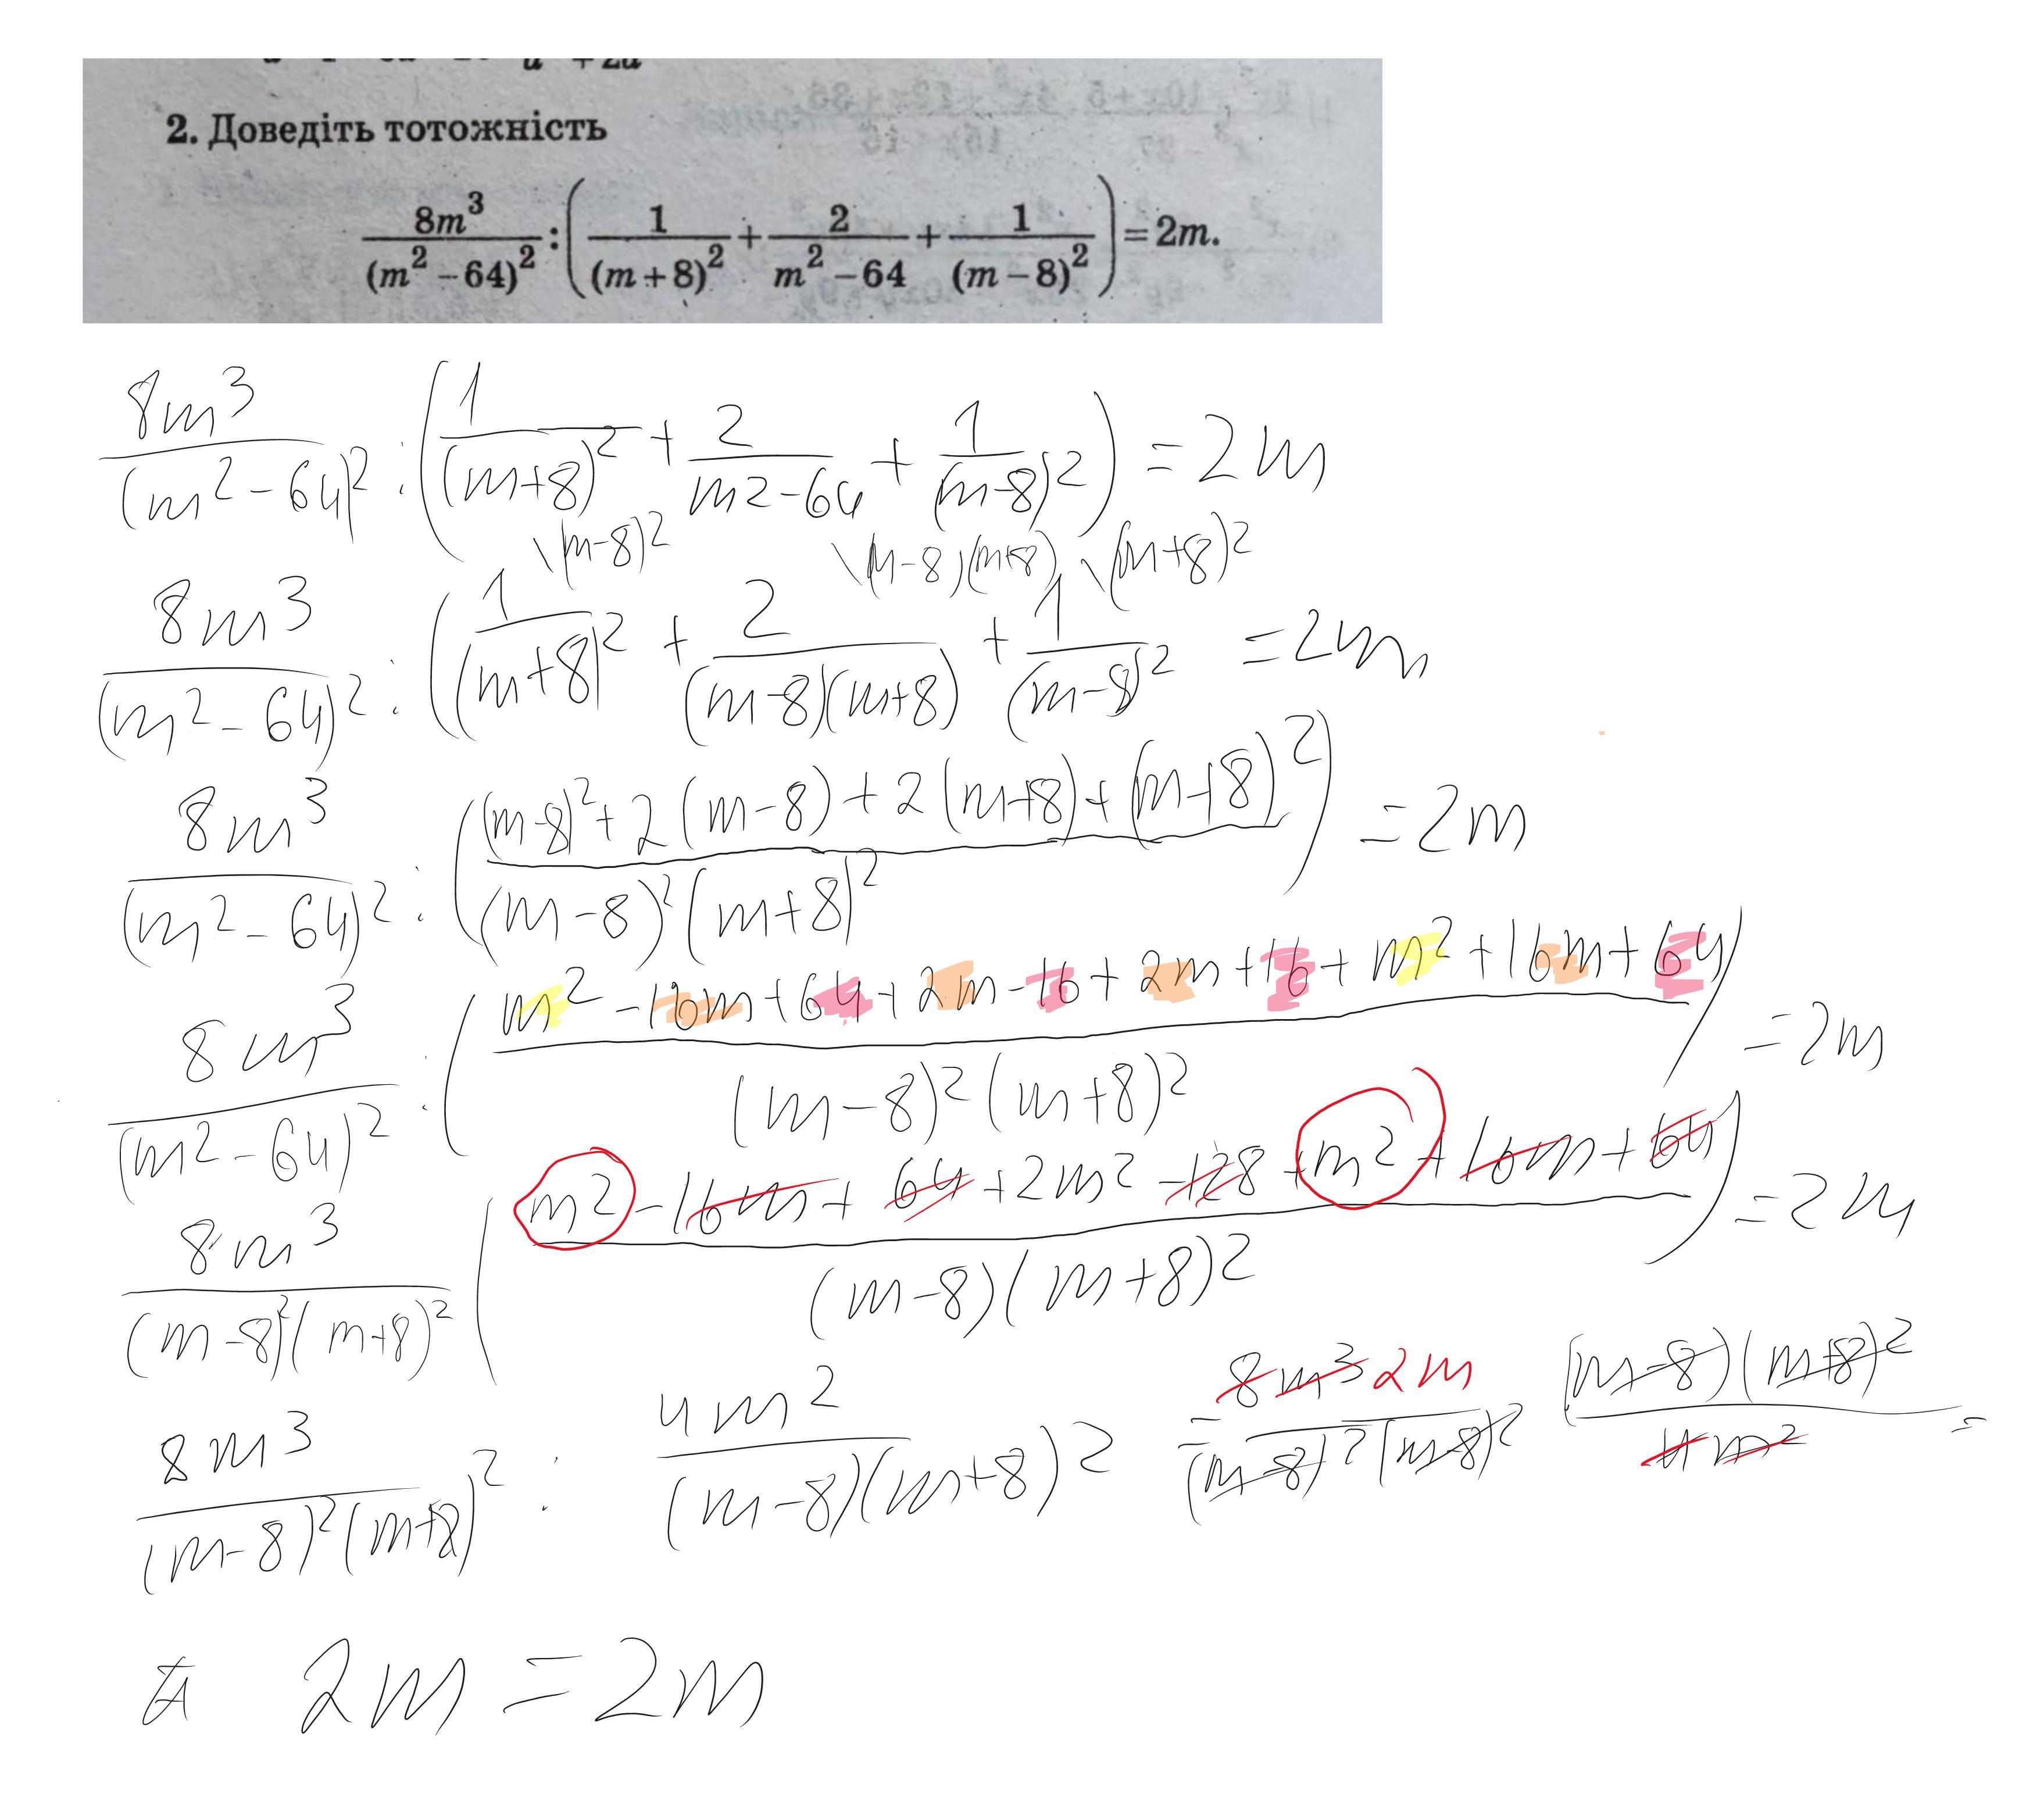 2. Доведіть тотожність
8m³/(m² – 64)² : (1/(m + 8)² + 2/(m² – 64) + 1/(m – 8)²) = 2m.
8m³/(m² – 64)² : (1/(m+8)² + 2/(m2 – 64) + 1/(m–8)²) = 2m
\(m–8)² \(m–8)(m+8) \(m+8)²
8m³/(m² – 64)² : (1/(m+8)² + 2/((m–8)(m+8)) + 1/(m–8)² = 2m
8m³/(m² – 64)² : (((m–8)² + 2(m–8) + 2(m+8) + (m+8)²)/((m–8)²(m+8)²)) = 2m
8m³/(m² – 64)² : ((m² – 16m + 64 + 2m – 16 + 2m + 16 + m² + 16m + 64)/((m–8)²(m+8)²)) = 2m
8m³/((m–8)²(m+8)²) ((m2 – 16m + 64 + 2m² – 128 + m2 + 16m + 64)/((m–8)(m+8)²)) = 2m
8m³/((m–8)²(m+8)²) : 4m²/((m–8)(m+8)²) = 8m³ 2m/((m–8)²(m–8)²) (m–8)(m+8)²/4m² =
2m = 2m